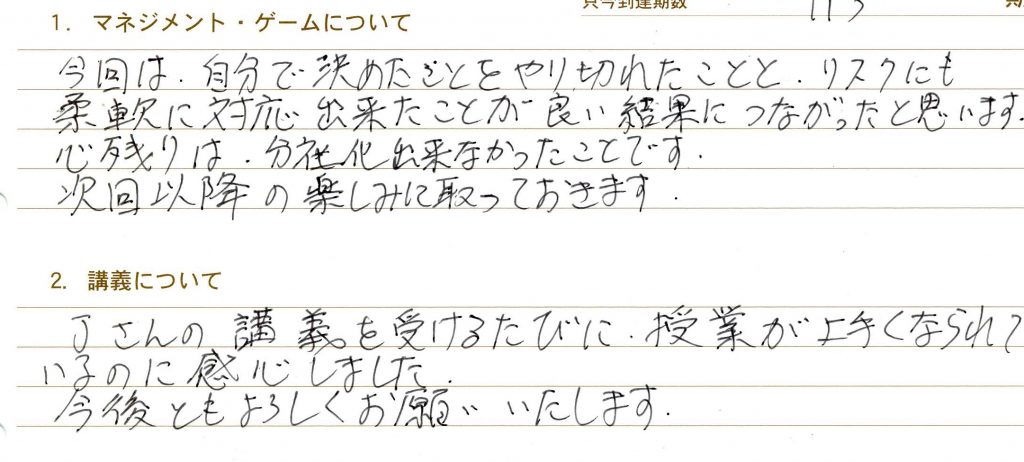 只今到達期数 113
1. マネジメント・ゲームについて
今回は、自分で決めたことをやり切れたことと、リスクにも
柔軟に対応出来たことが良い結果につながったと思います。
心残りは、分社化出来なかったことです。
次回以降の楽しみに取っておきます。
2. 講義について
Jさんの講義を受けるたびに、授業が上手くなられて
いるのに感心しました。
今後ともよろしくお願いいたします。